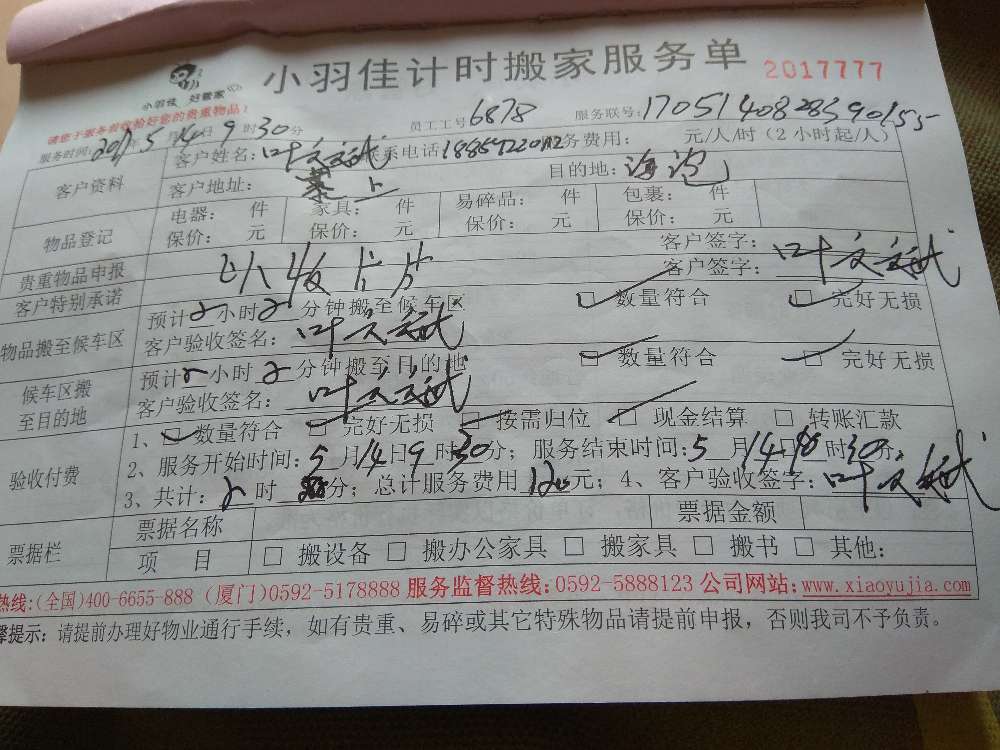 小羽佳计时搬家服务单 2017777
小羽佳 好管家
请您于服务前收验好您的贵重物品！
服务时间：2017年5月14日9时30分 员工工号6878 服务联号：
客户资料
客户姓名：叶文斌 联系电话 服务费用： 元/人/时（2小时起/人）
客户地址： 上 目的地：海沧
物品登记
电器： 件 家具： 件 易碎品： 件 包裹： 件
保价： 元 保价： 元 保价： 元 保价： 元
贵重物品申报 客户签字：
客户特别承诺 客户签字：叶文斌
物品搬至候车区
预计2小时2分钟搬至候车区 数量符合 完好无损
客户验收签名：叶文斌
候车区搬至目的地
预计2小时2分钟搬至目的地 数量符合 完好无损
客户验收签名：叶文斌
验收付费
1、数量符合 完好无损 按需归位 现金结算 转账汇款
2、服务开始时间：5月14日9时30分；服务结束时间：5月14日 时30分；
3、共计：2时 分；总计服务费用120元；4、客户验收签字：叶文斌
票据栏
票据名称 票据金额
项 目 搬设备 搬办公家具 搬家具 搬书 其他：
热线：(全国)400-6655-888 (厦门)0592-5178888 服务监督热线：0592-5888123 公司网站：www.xiaoyujia.com
馨提示：请提前办理好物业通行手续，如有贵重、易碎或其它特殊物品请提前申报，否则我司不予负责。